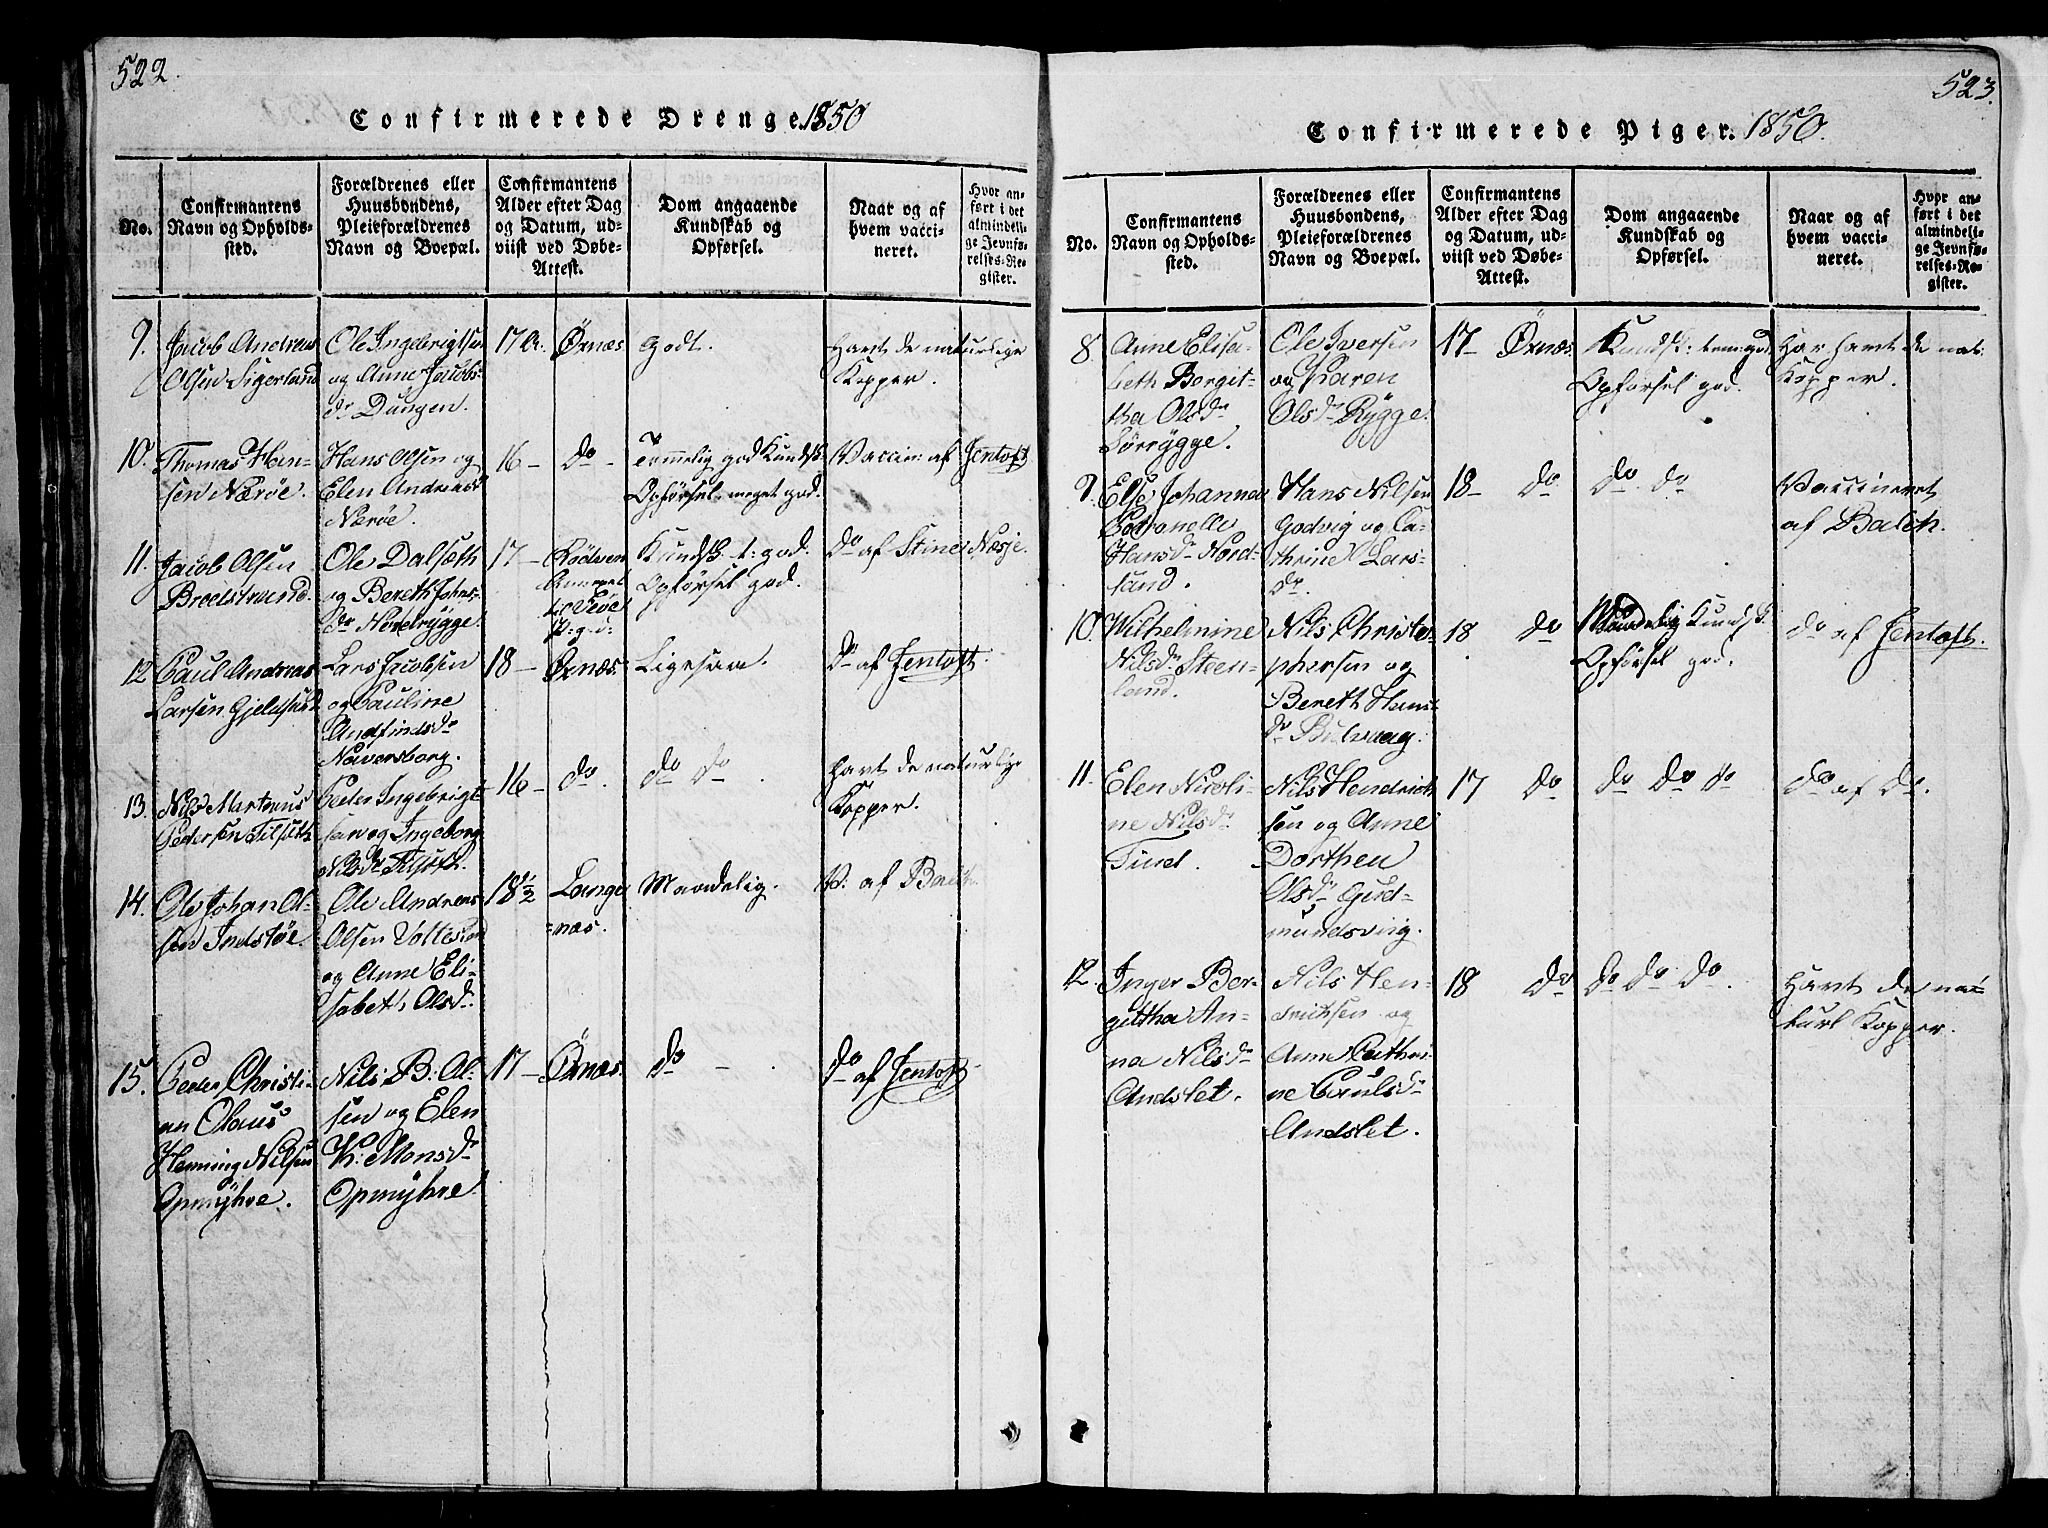 522.
Confirmerede Drenge 1850
No.
Confirmantens
Navn og Opholds-
sted.
Forældrenes eller
Huusbondens,
Pleieforældrenes
Navn og Boepæl.
Confirmantens
Alder efter Dag
og Datum, ud-
viist ved Døbe-
Attest.
Dom angaaende
Kundskab og
Opførsel.
Naar og af
hvem vacci-
neret.
Hvor an-
ført i det
almindeli-
ge Jevnfø-
relses-Re-
gister.
9.
Jacob Andreas
Olsen Sigerland
Ole Ingebrigtsen
og Anne Jacobs-
dr Dungen.
17 A.
Örnæs
Godt.
Havt de naturlige
Kopper.
10.
Thomas Han-
sen Nærøe.
Hans Olsen og
Elen Andreasd
Nærøe.
16 -
do -
Temmelig god Kundsk.
Opförsel meget god.
Vaccin: af Jentoft
11.
Jacob Olsen
Bredstrand.
Ole Dalseth
og Bereth Johns-
dr Nordrygge.
17 -
Rödven
Annexet
til Veöe
P:g:d:
Kundsk: t: god.
Opförsel god.
do af Stine Næsje.
12
Paul Andreas
Larsen Gjeldsund
Lars Jacobsen
og Pauline
Andfindsdr
Naversborg.
18 -
Örnæs.
Ligesaa.
do af Jentoft.
13.
Nils Martinus
Pedersen Tilseth
Peder Ingebrigt-
sen og Ingeborg
Nilsdr Tilseth.
16 -
do.
do do.
havt de naturlige
Kopper.
14.
Ole Johan Ol-
sen Indstöe.
Ole Andreas
Olsen
og Anne Eli-
sabeth Olsdr.
18 1/2
Lange
=næs.
Maadelig.
V. af Balch.
15.
Peder Christi-
an Olaus
Henning Nilsen
Opmÿhre.
Nils B: Ol-
sen og Elen
K: Monsdr
Opmÿhre.
17 -
Örnæs.
do -
do af Jentoft -
523.
Confirmerede Piger. 1850.
No.
Confirmantens
Navn og Opholds-
sted.
Forældrenes eller
Huusbondens,
Pleieforældrenes
Navn og Boepæl.
Confirmantens
Alder efter Dag
og Datum, ud-
viist ved Døbe-
Attest.
Dom angaaende
Kundskab og
Opførsel.
Naar og af
hvem vacci-
neret.
Hvor an-
ført i det
almindeli-
ge Jevnfø-
relses-Re-
gister.
8
Anne Elisa-
beth Bergit-
tha Olsdr
Sörrÿgge.
Ole Iversen
og Karen
Olsdr Rÿgge.
17 -
Örnæs.
Kundsk: tem: god
Opförsel god.
Har havt de nat:
Kopper.
9.
Else Johanna
Petronelle
Hansdr Nord-
sand.
Hans Nilsen
Godvig og Ca-
thrine Lars-
dr.
18 -
do
do do
Vaccineret
af Balch.
10.
Wilhelmine
Nilsdr Steen-
land.
Nils Christo-
phersen og
Bereth Hans-
dr Bulvaag.
18
do
Maadelig Kundsk.
Opförsel god.
do af Jentoft.
11.
Elen Nicoli-
ne Nilsdr
Find.
Nils Hendrich-
sen og Anne
Dorthea
Olsdr Gud-
mundsvig.
17
do
do do do
do af do.
12.
Inger Ber-
gittha An-
na Nilsdr
Andslet.
Nils Hen-
drichsen og
Anne Cathri-
ne Paulsdr
Andslet.
18
do
do do do.
Havt de na-
turl Kopper.